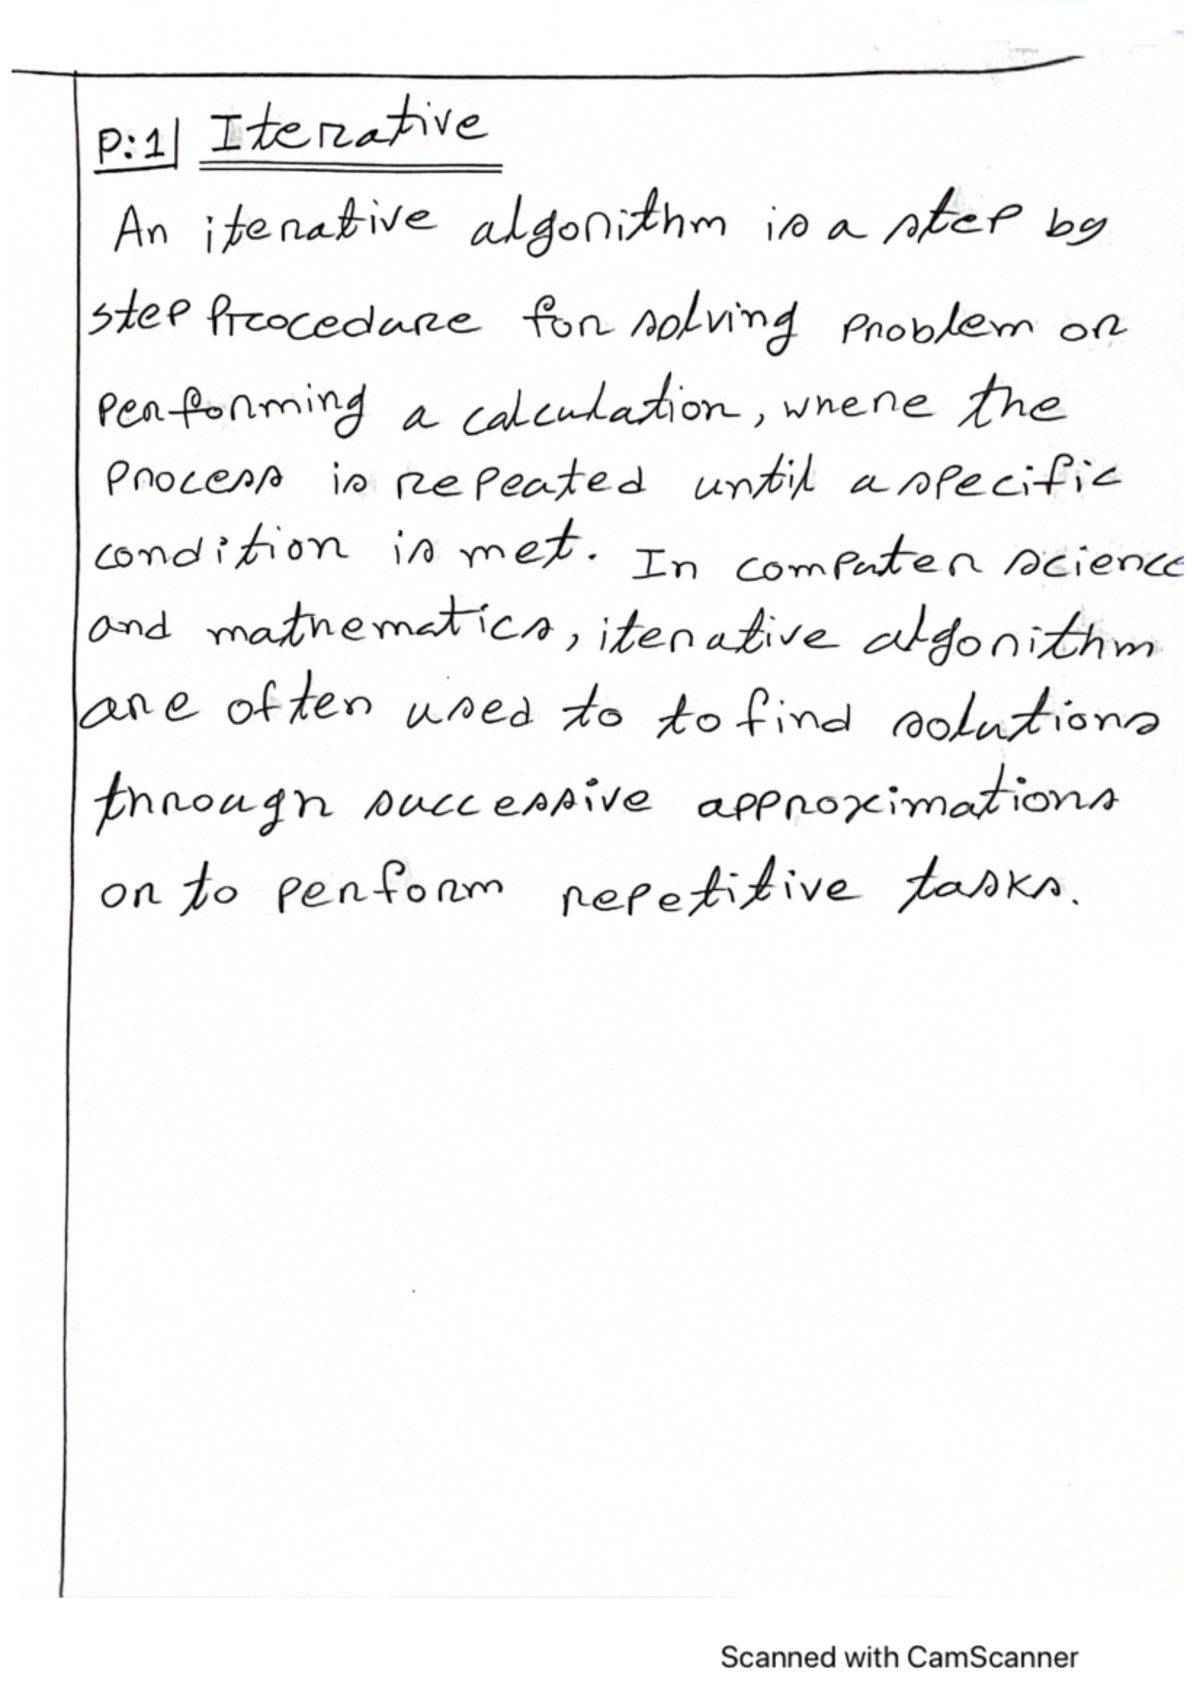 P:1 Iterative
An iterative algorithm is a step by
step procedure for solving problem or
performing a calculation, where the
process is repeated until a specific
condition is met. In computer science
and mathematics, iterative algorithm
are often used to to find solutions
through successive approximations
or to perform repetitive tasks.
Scanned with CamScanner